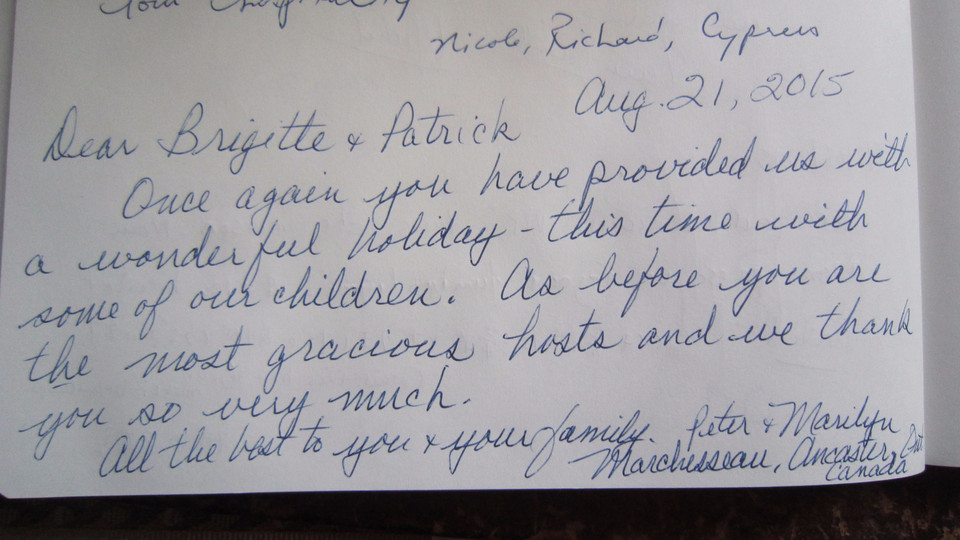 your hospitality
Nicole, Richard, Cyprus
Aug. 21, 2015
Dear Brigitte & Patrick
Once again you have provided us with
a wonderful holiday - this time with
some of our children. As before you are
the most gracious hosts and we thank
you so very much.
All the best to you & your family. Peter & Marilyn
Marchesseau, Ancaster, Ont
Canada